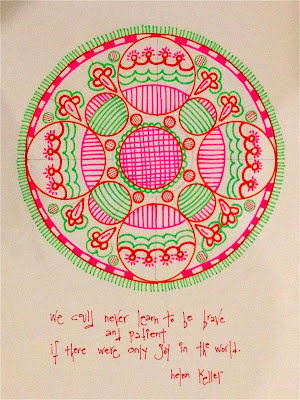 we could never learn to be brave
and patient
if there were only joy in the world.
helen keller